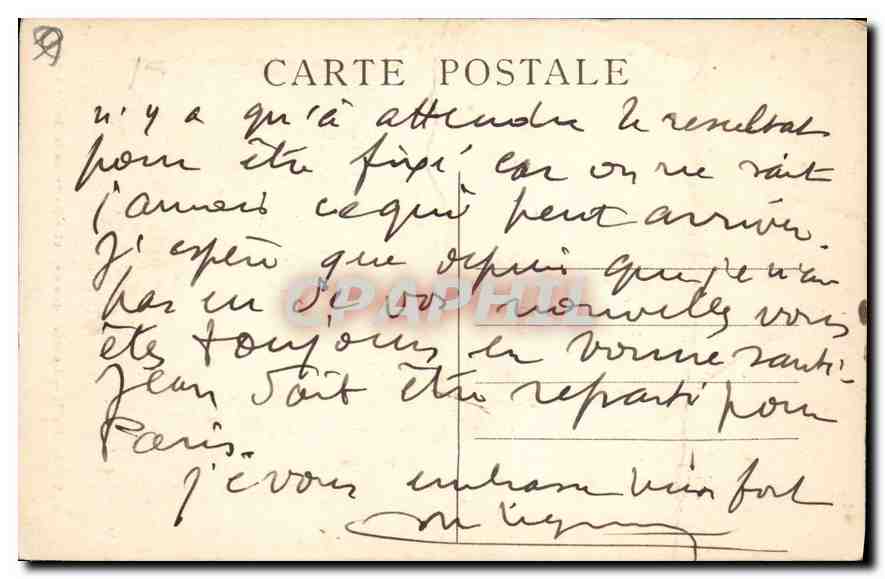 CARTE POSTALE
n'y a qu'à attendre le resultat
pour être fixé car on ne sait
jamais ce qui peut arriver.
J'espère que depuis que je n'ai
pas eu de vos nouvelles vous
êtes toujours en bonne santé.
Jean doit être reparti pour
Paris.
je vous embrasse bien fort
CPAPHIL